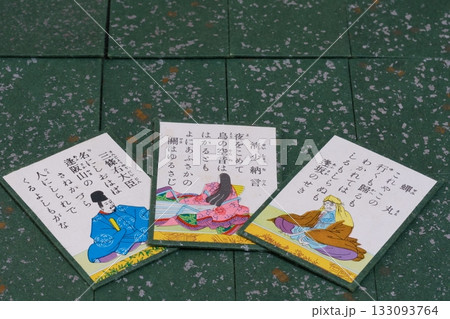 三條右大臣
名にしおはば
逢阪山の
さねかづら
人にしられで
くるよしもがな
清少納言
夜をこめて
鳥の空音は
はかるとも
よにあふさかの
關はゆるさじ
蟬丸
これやこの
行くも歸るも
わかれては
しるもしらぬも
逢阪のせき
133093764